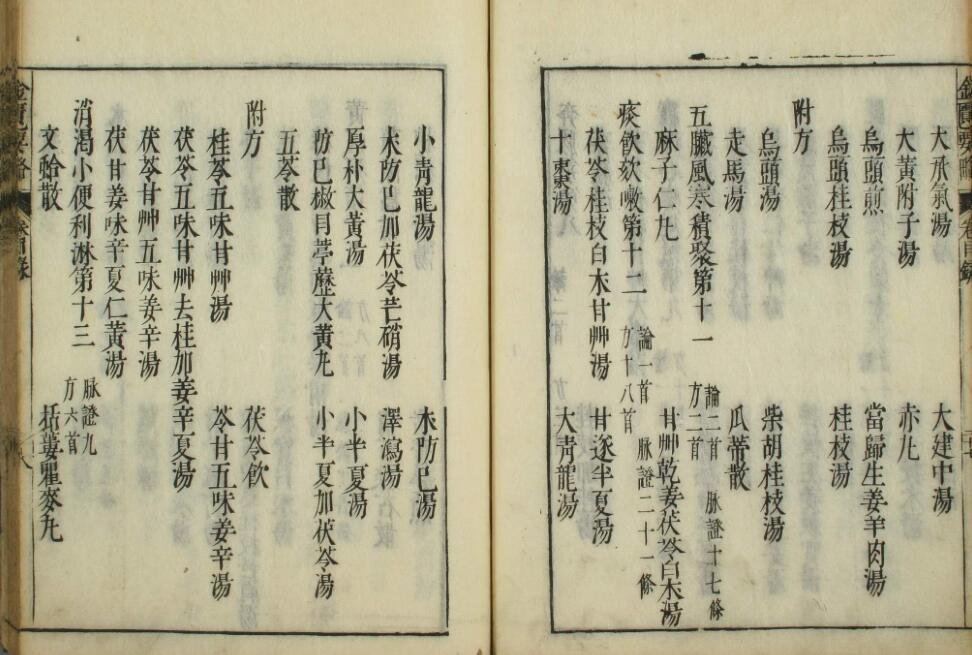 大承氣湯　大建中湯
大黃附子湯　赤丸
烏頭煎　當歸生姜羊肉湯
烏頭桂枝湯　桂枝湯
附方
烏頭湯　柴胡桂枝湯
走馬湯　瓜蒂散
五臟風寒積聚第十一　論二首　脉證十七條　方二首
麻子仁丸　甘艸乾姜茯苓白朮湯
痰飲欬嗽第十二　論一首　脉證二十一條　方十八首
茯苓桂枝白朮甘艸湯　甘遂半夏湯
十棗湯　大青龍湯
小青龍湯　木防巳湯
木防巳加茯苓芒硝湯　澤瀉湯
厚朴大黃湯　小半夏湯
防巳椒目葶藶大黃丸　小半夏加茯苓湯
五苓散
附方　茯苓飲
桂苓五味甘艸湯　苓甘五味姜辛湯
茯苓五味甘艸去桂加姜辛夏湯
茯苓甘艸五味姜辛湯
茯甘姜味辛夏仁黃湯
消渴小便利淋第十三　脉證九　方六首
文蛤散　括蔞瞿麥丸